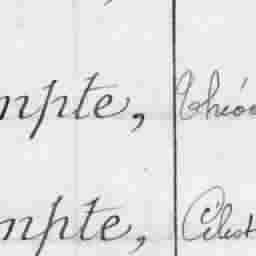 mpte, Théo
mpte, Célest